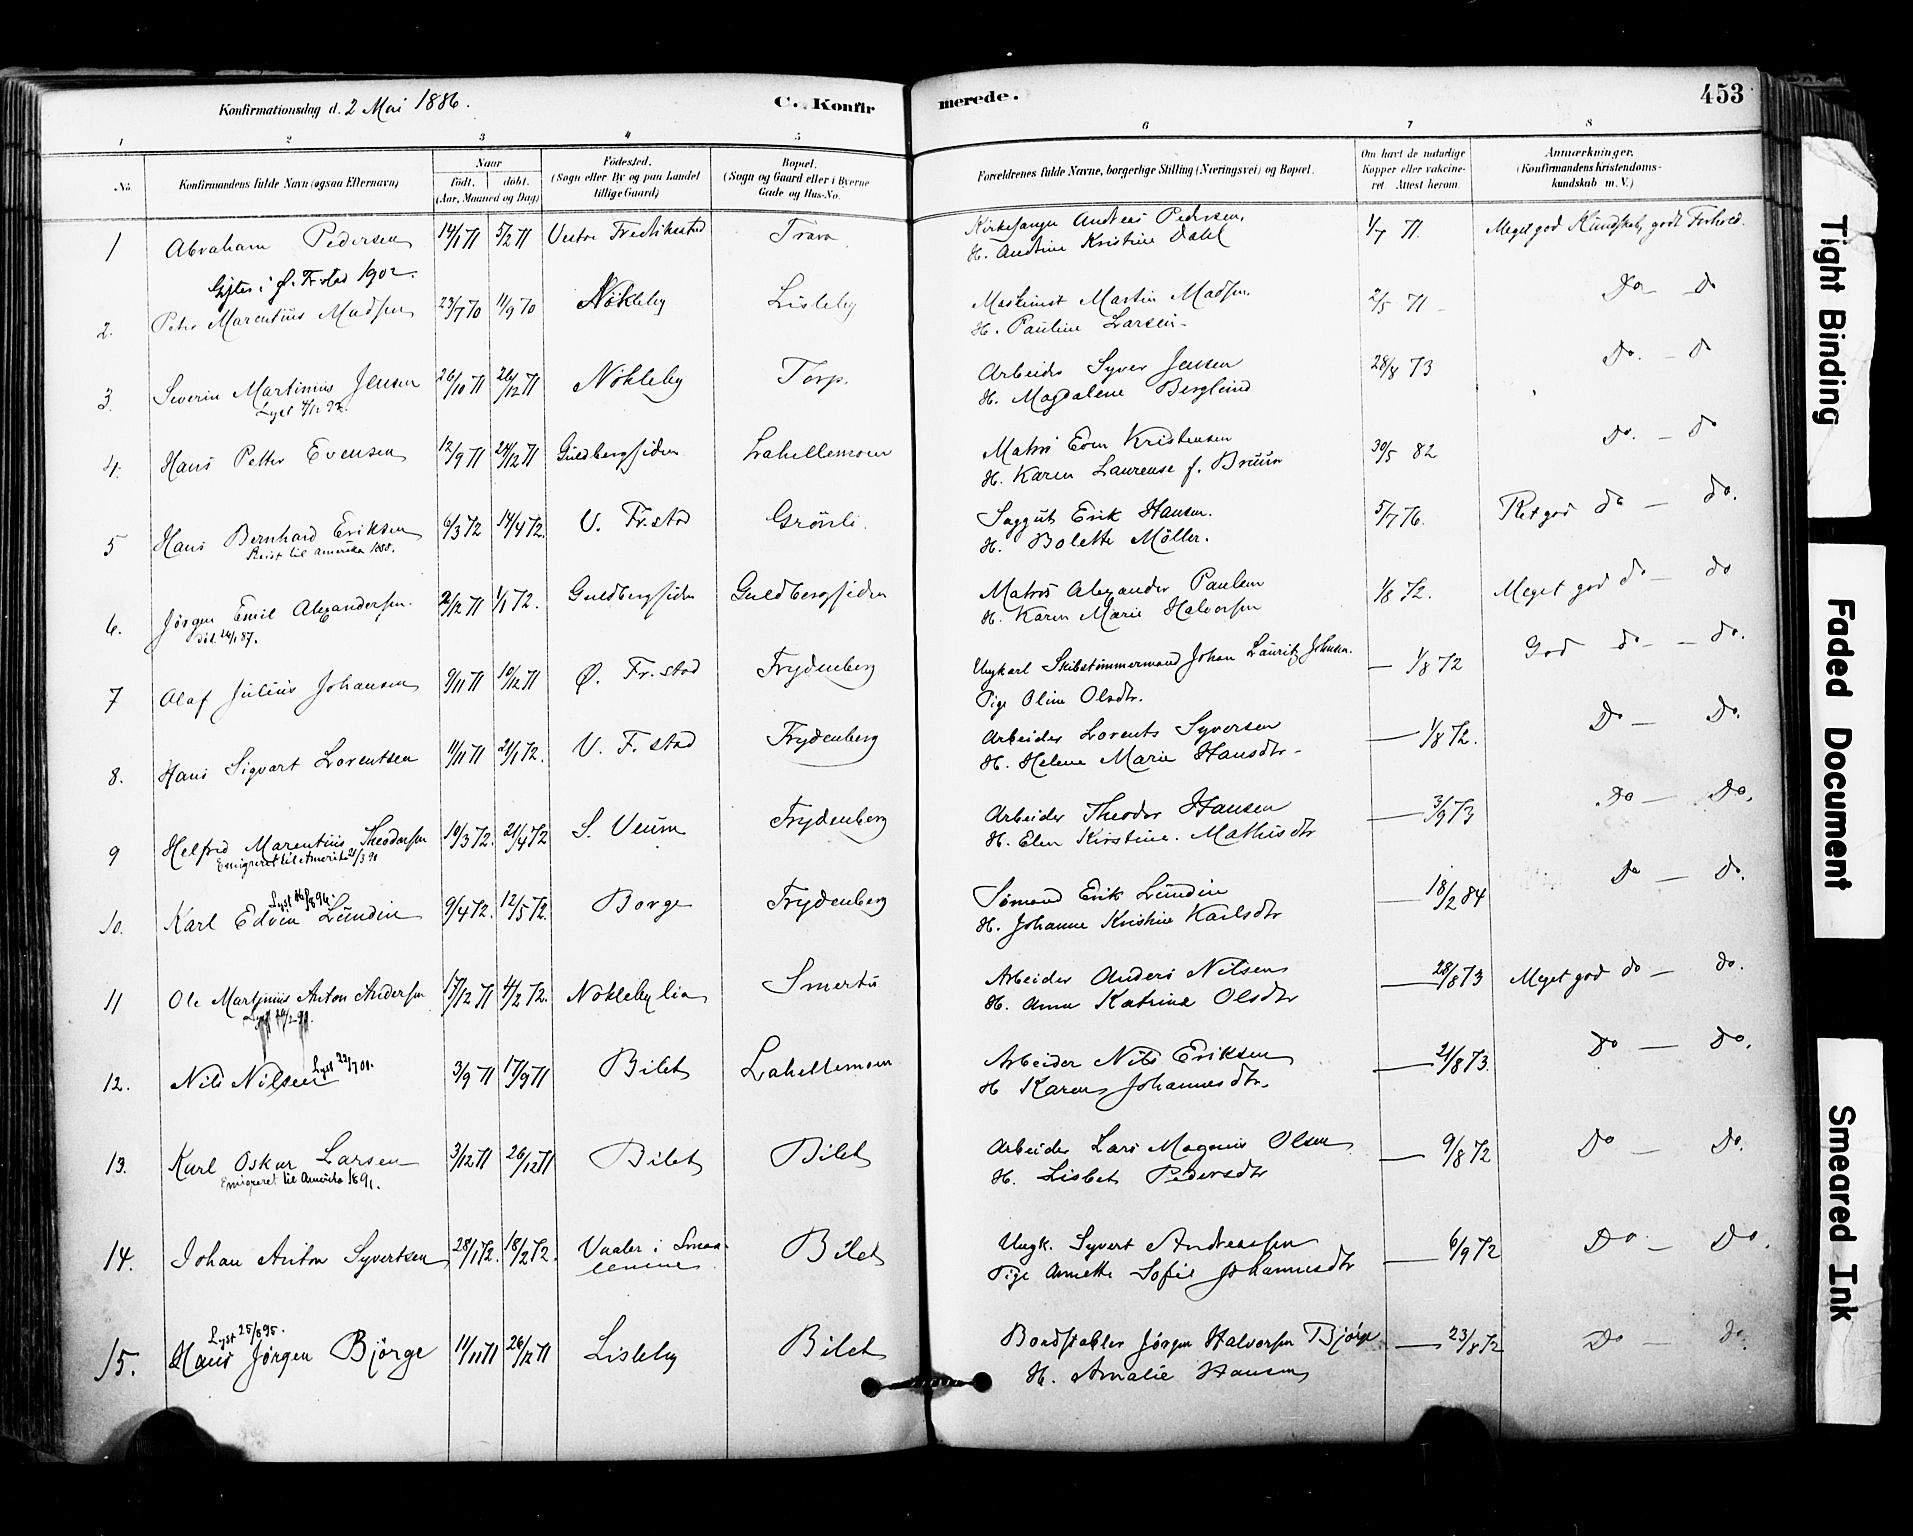 Konfirmationsdag d. 2 Mai 1886.
C. Konfirmerede.
453
1 2 3 4 5 6 7 8
No.
Konfirmandens fulde Navn (ogsaa Efternavn)
Naar
født. døbt.
(Aar, Maaned og Dag)
Fødested.
(Sogn eller By og paa Landet
tillige Gaard)
Bopæl.
(Sogn og Gaard eller i Byerne
Gade og Hus-No.
Forældrenes fulde Navne, borgerlige Stilling (Næringsvei) og Bopæl.
Om havt de naturlige
Kopper eller vakcine-
ret. Attest herom.
Anmærkninger.
(Konfirmandens Kristendoms-
kundskab m. V.)
1 Abraham Pedersen 14/1 71 5/2 71 Vestre Fredrikstad Trara Kirkesanger Andreas Pedersen, 1/7 71. Meget god Kundskab, godt Forhold.
H. Andrine Kristine Dahl
Gjtes i Ø. Fr.stad 1902.
2. Peter Marentius Madsen 23/7 70 11/9 70 Nökleby Lisleby Maskinist Martin Madsen. 2/5 71 Do - do
H. Pauline Larsen
3. Severin Martinius Jensen 26/10 71 26/12 71 Nökleby Torp. Arbeider Syver Jensen 28/8 73 Do. - do
H. Magdalene Berglund
4. Hans Petter Evensen 12/9 71 24/12 71 Guldbergsiden Lahellemoen Matros Even Kristensen 30/5 82 Do. - do
H. Karen Laurense f. Bruun
5 Hans Bernhard Eriksen 6/3 72 14/4 72. V. Fr.stad Grönli. Saggut Erik Hansen. 5/7 76. Ret god do - do.
Reist til Amerika 1888.
H. Bolette Möller.
6. Jørgen Emil Alexandersen. 2/12 71 1/1 72. Guldbergsiden Guldbergsiden Matros Alexander Paulsen 1/8 72. Meget god do - do
H. Karen Marie Halvorsen
7 Olaf Julius Johansen 9/11 71 10/12 71 Ø. Fr.stad Frydenberg Ungkarl Skibstømmermand Johan Lauritz Johnsen. — 1/8 72 God do - do.
Pige Oline Olsdtr.
8. Hans Sigvart Lorentsen 11/11 71 21/1 72. V. F.stad Frydenberg Arbeider Lorents Syversen — 1/8 72. Do — Do.
H. Helene Marie Hansdtr
9 Helfred Marentius Theodorsen 10/3 72. 21/4 72 S. Veum Frydenberg Arbeider Theodor Hansen — 3/9 73 Do — Do.
Emigreret til Amerika 21/3 91
H. Elen Kirstine. Mathisdtr
10. Karl Edvin Lundin 9/4 72. 12/5 72. Borge Frydenberg Sømand Erik Lundin — 18/2 84 Do — Do.
H. Johanne Kristine Karlsdtr
11 Ole Martinius Anton Andersen 17/12 71 4/2 72. Nöklebylia Smertu Arbeider Anders Nilsen — 28/8 73 Meget god do — do.
H. Anna Katrine Olsdtr
12. Nils Nilsen 3/9 71 17/9 71 Bilet Lahellemoen Arbeider Nils Eriksen — 21/8 73. Do — Do.
H Karen Johannesdtr.
13. Karl Oskar Larsen 3/12 71 26/12 71 Bilet Bilet Arbeider Lars Magnus Olsen — 9/8 72 Do — Do.
Emigreret til Amerika 1891.
H. Lisbet Pedersdtr
14. Johan Anton Syvertsen 28/1 72. 18/2 72. Vaaler i Smaa- Bilet Ungk. Syvert Andreassen — 6/9 72 Do — Do.
lenene
Pige Annette Sofie Johannesdtr
Lyst 25/8 95.
15. Hans Jørgen Björge 11/11 71 26/12 71 Lisleby Bilet Bordstabler Jørgen Halvorsen Bjørge — 23/8 72 Do — do.
H. Amalie Hansen
Tight Binding
Faded Document
Smeared Ink